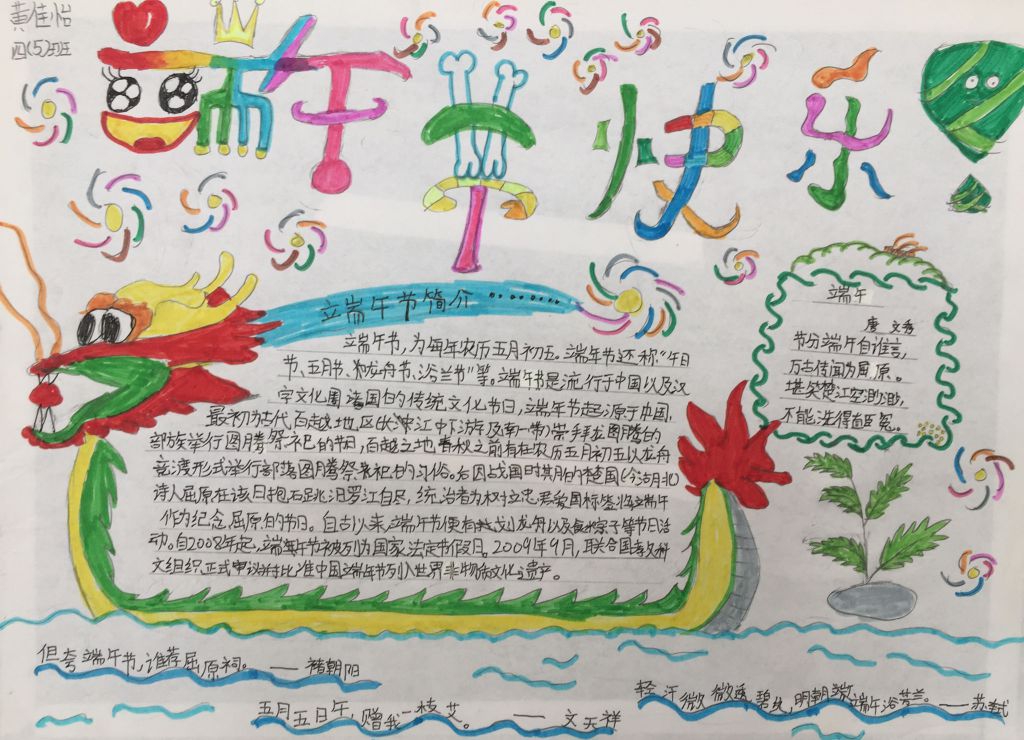 黄佳怡
四(5)班
端午节快乐
端午节简介………
端午节，为每年农历五月初五。端午节还称“午日
节、五月节、龙舟节、浴兰节”等。端午节是流行于中国以及汉
字文化圈诸国的传统文化节日，端午节起源于中国，
最初为古代百越地区
部族举行图腾祭祀的节日，百越之地春秋之前有在农历五月初五以龙舟
竞渡形式举行部落图腾祭祀的习俗。后因战国时期的楚国(今湖北)
诗人屈原在该日抱石跳汨罗江自尽，统治者为树立忠君爱国标签将端午
作为纪念屈原的节日。自古以来端午节便有划龙舟以及食粽子等节日活
动。自2008年起，端午节被列为国家法定节假日。2009年9月，联合国教科
文组织正式审议并批准中国端午节列入世界非物质文化遗产。
端午
唐 文秀
节分端午自谁言，
万古传闻为屈原。
堪笑楚江空渺渺，
不能洗得直臣冤。
但夸端午节，谁荐屈原祠。——褚朝阳
五月五日午，赠我一枝艾。——文天祥
轻汗微微透碧纨，明朝端午浴芳兰。——苏轼